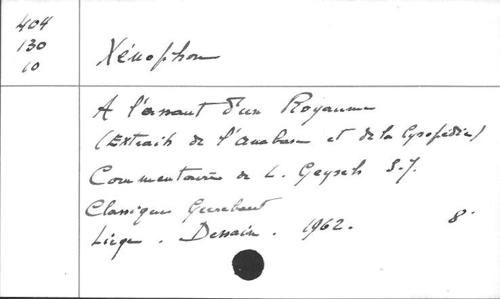 404
130
10
Xénophon
A l'assaut d'un Royaume
(Extraits de l'Anabase et de la Cyropédie)
Commentaires de L. Geysels S.J.
Classiques Gueubaut
Liège. Dessain. 1962. 8°